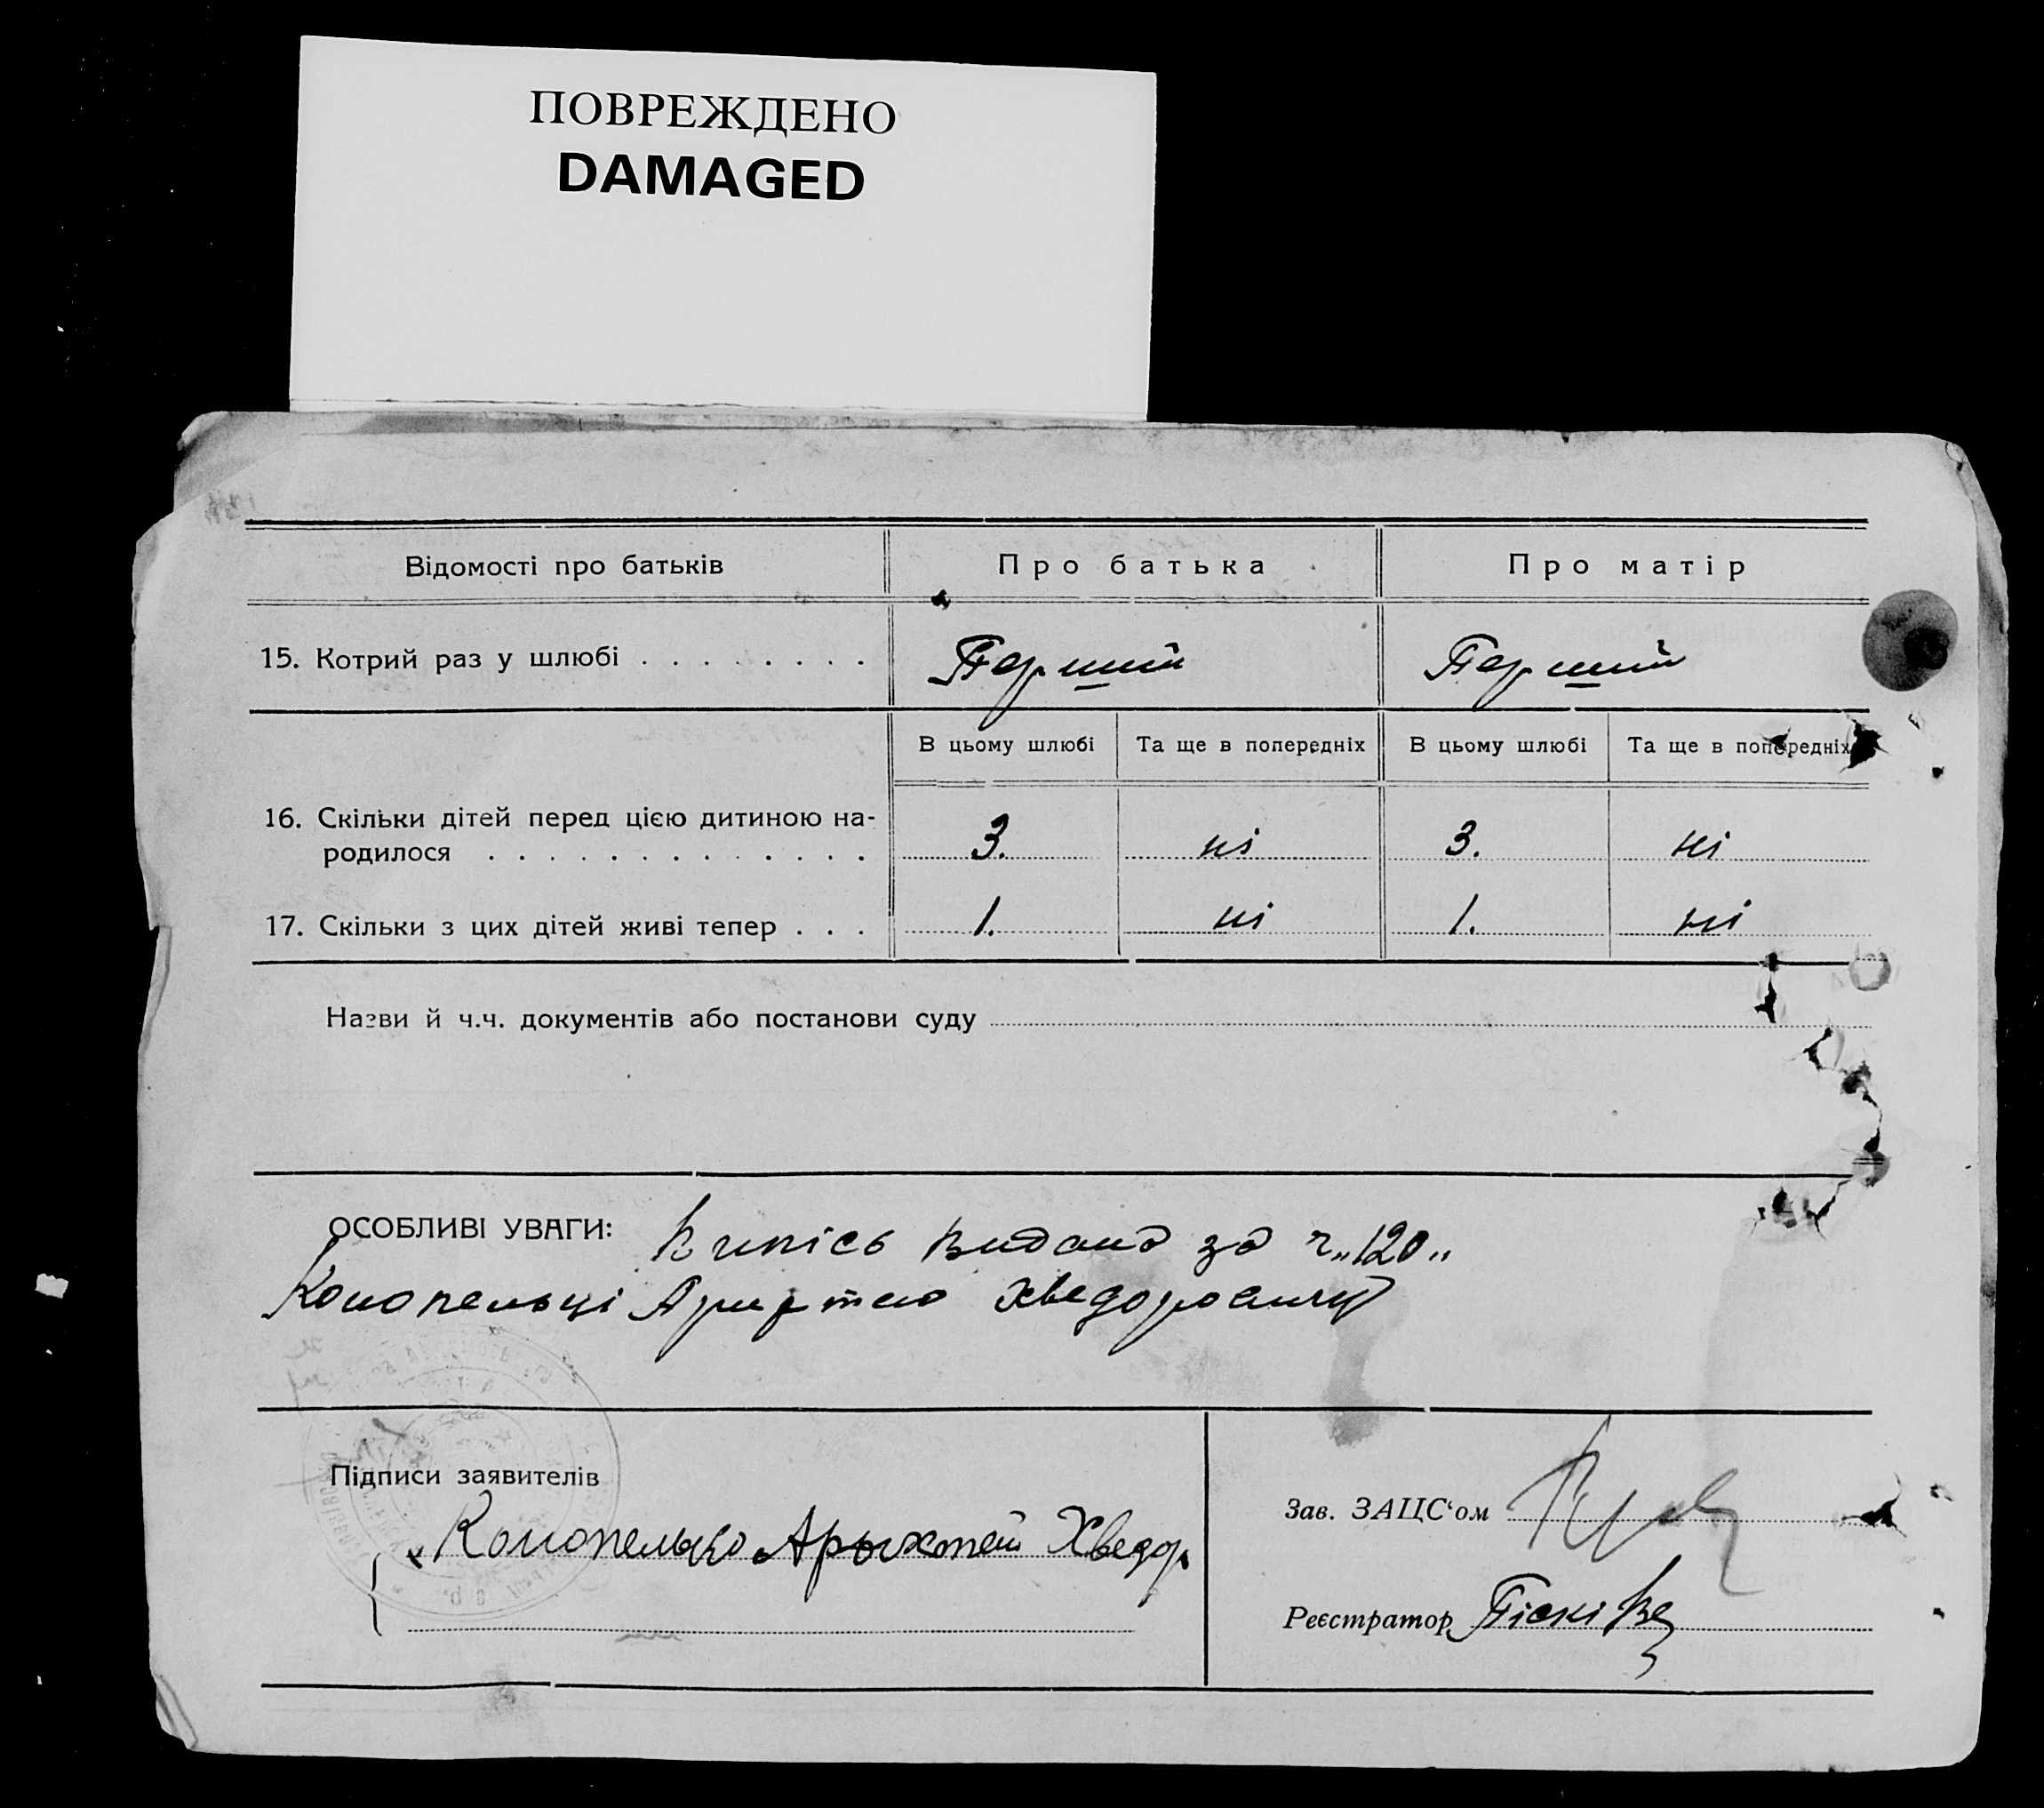 ПОВРЕЖДЕНО
DAMAGED
Відомості про батьків
Про батька
Про матір
15. Котрий раз у шлюбі . . . . . . . .
Перший
Перший
В цьому шлюбі
Та ще в попередніх
В цьому шлюбі
Та ще в попередніх
16. Скільки дітей перед цією дитиною на-
родилося . . . . . . . . . . . .
3.
ні
3.
ні
17. Скільки з цих дітей живі тепер . . .
1.
ні
1.
ні
Назви й ч.ч. документів або постанови суду
ОСОБЛИВІ УВАГИ: Випісь видана за ч„120„
Конопельці Хведоровичу
Підписи заявителів
Конопелько Арыхтей Хведор
Зав. ЗАЦС‘ом
Реєстратор